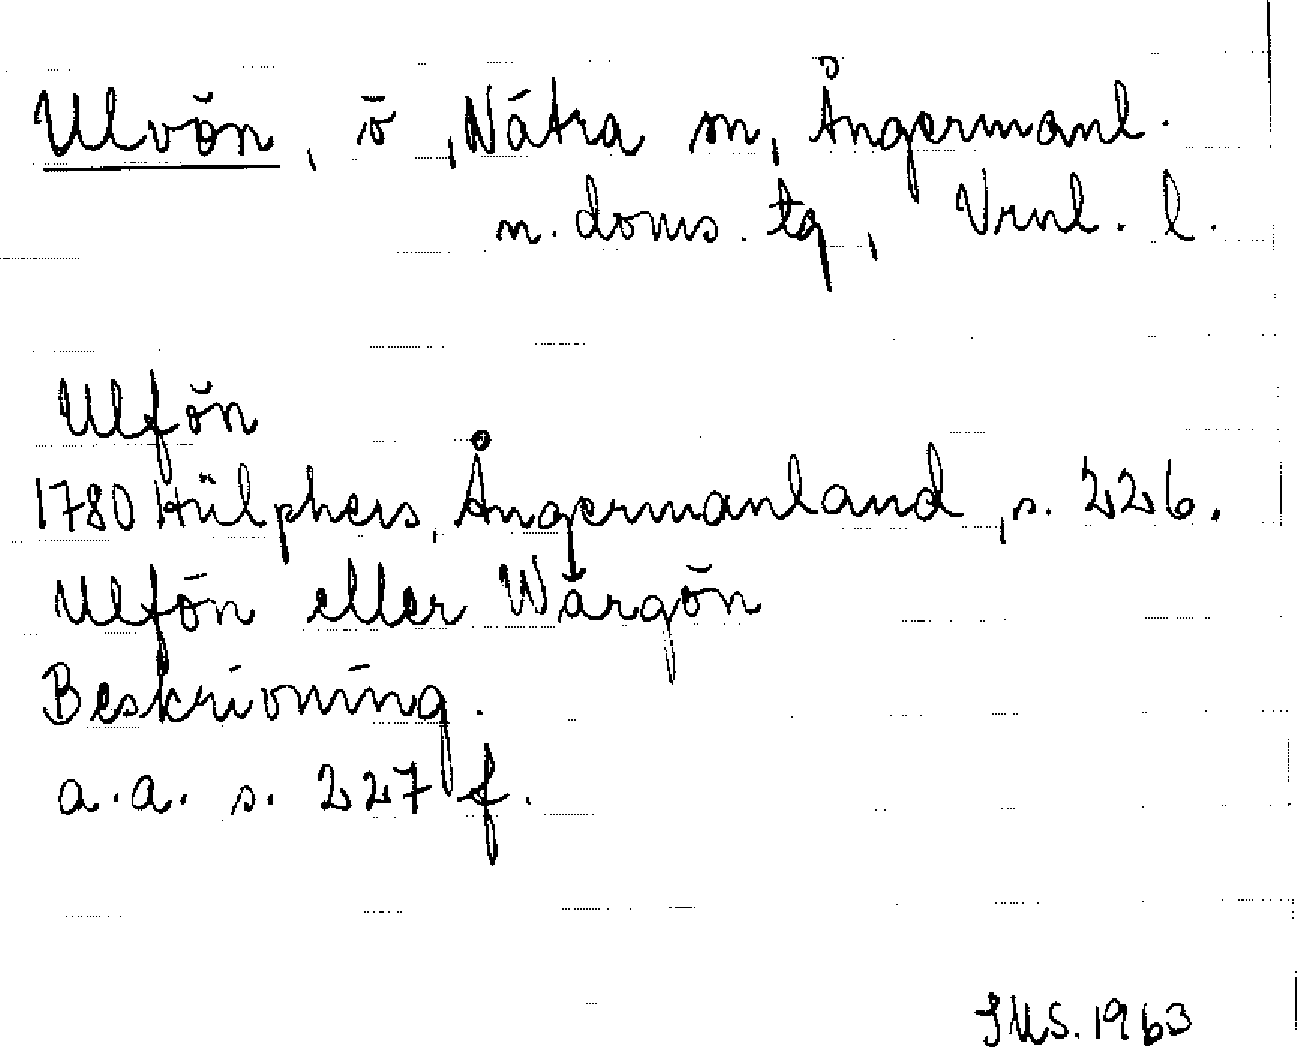 Ulvön, ö, Nätra sn, Ångermanl.
n. doms. tg, Vrnl. l.
Ulfön
1780 Hülphers, Ångermanland, s. 226.
Ulfön eller Wårgön
Beskrivning.
a.a. s. 227 f.
1963